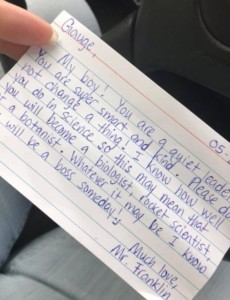 George,
05.
My boy! You are a quiet leader.
You are super smart and kind. Please do
not change a thing. I know how well
you do in science so this may mean that
you will become a biologist, rocket scientist,
a botanist. Whatever it may be I know
will be a boss someday!
Much love,
Mr. Franklin